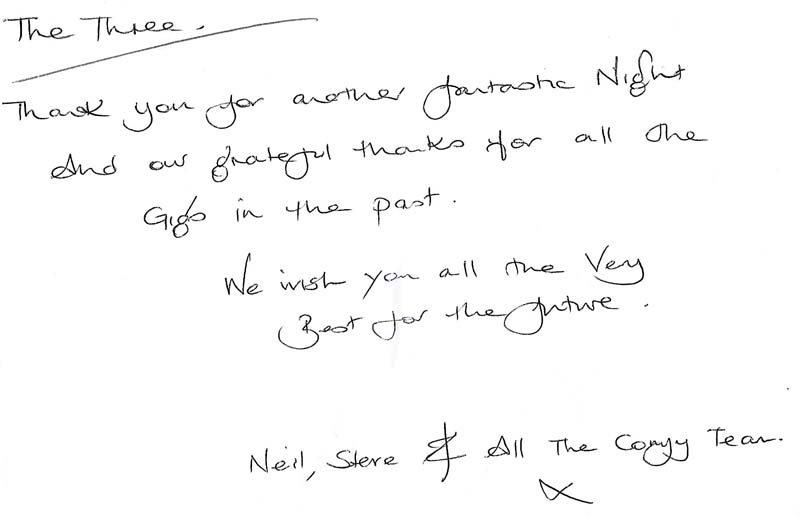 The Three.
Thank you for another fantastic Night
And our grateful thanks for all the
Gigs in the past.
We wish you all the Very
Best for the future.
Neil, Steve & All The Team.
X